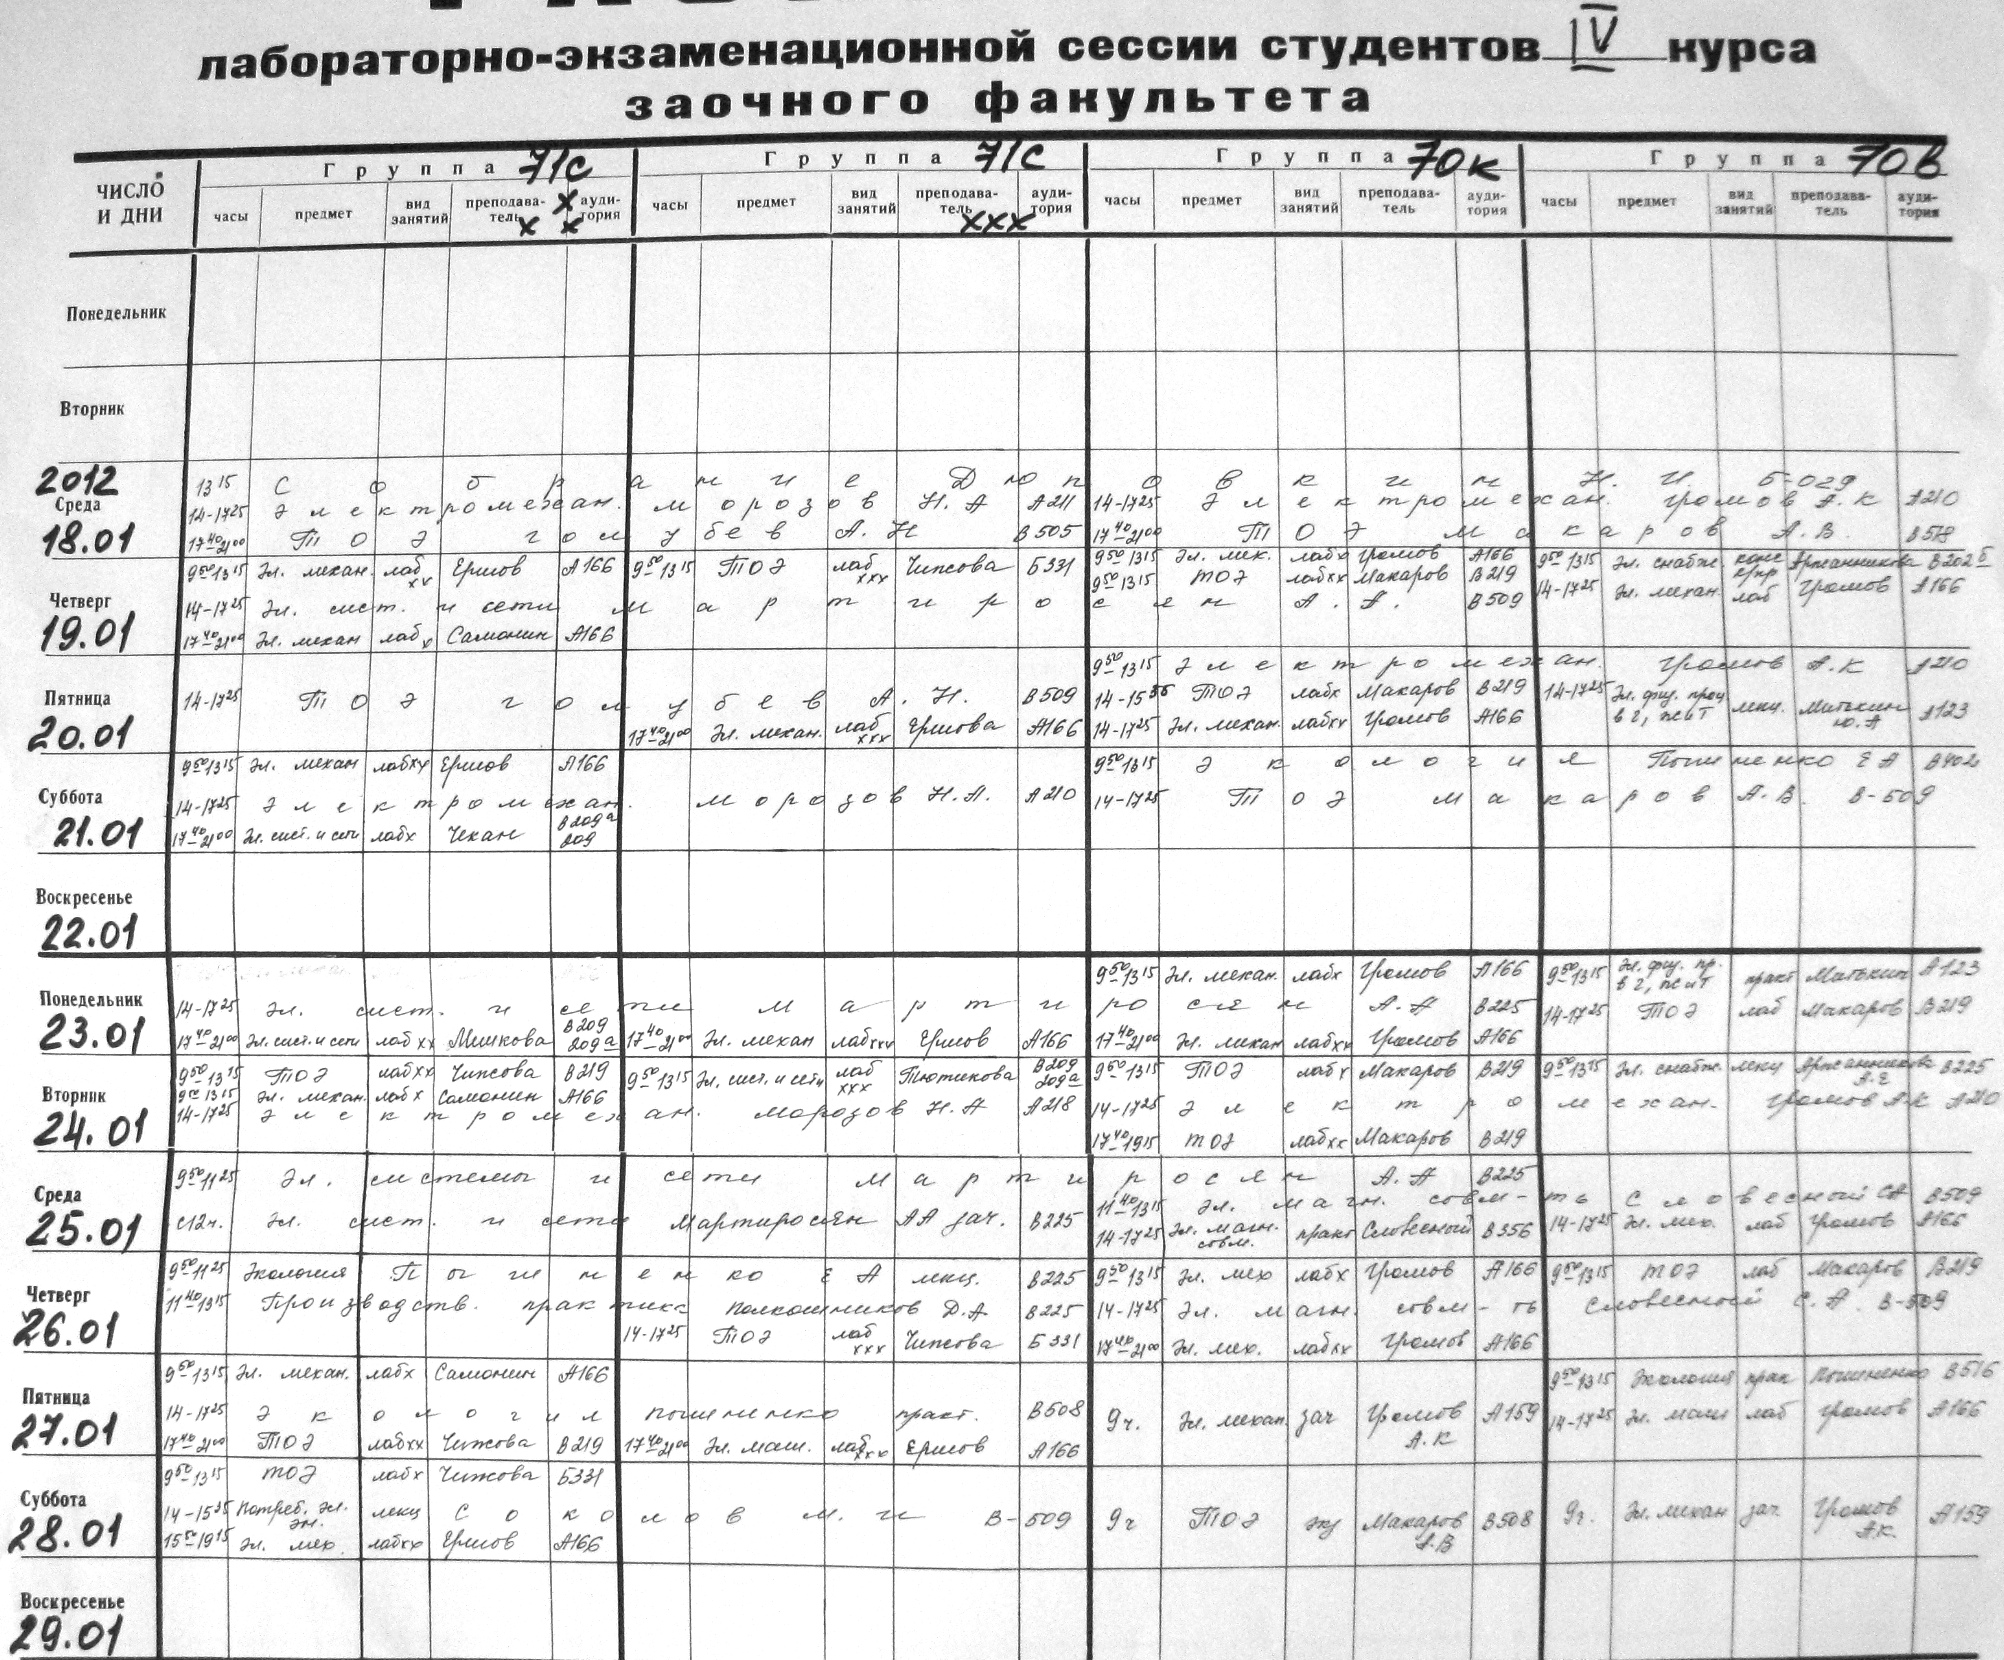 лабораторно-экзаменационной сессии студентов IV курса
заочного факультета
ЧИСЛО И ДНИ
Группа 71с Группа 71с Группа 70к Группа 70в
часы предмет вид занятий преподаватель x x x аудитория часы предмет вид занятий преподаватель xxx аудитория часы предмет вид занятий преподаватель аудитория часы предмет вид занятий преподаватель аудитория
Понедельник
Вторник
2012
Среда
18.01
13 15 Собрание Дюповкин Н. И. Б-029
14-17 25 Электромехан. Морозов Н. А А211 14-17 25 Электромехан. Громов А. К А210
17 40-21 00 ТОЭ Голубев А. Н В505 17 40-21 00 ТОЭ Макаров А. В. В518
Четверг
19.01
9 50-13 15 Эл. механ. лаб xx Ершов А166 9 50-13 15 ТОЭ лаб xxx Чижова Б331 9 50-13 15 Эл. мех. лабx Громов А166 9 50-13 15 Эл. снабж. Аржанникова В202б
9 50-13 15 ТОЭ лабxx Макаров В219
14-17 25 Эл. сист. и сети Мартиросян А. А. В509 14-17 25 Эл. механ. лаб Громов А166
17 40-21 00 Эл. механ лаб x Самонин А166
Пятница
20.01
9 50-13 15 Электромехан. Громов А. К А210
14-17 25 ТОЭ Голубев А. Н. В509 14-15 35 ТОЭ лабx Макаров В219 14-17 25 Эл. физ. проц в г, ж и т лекц. Митькин Ю. А А123
17 40-21 00 Эл. механ. лаб xxx Ершова А166 14-17 25 Эл. механ. лабxx Громов А166
Суббота
21.01
9 50-13 15 Эл. механ лабxx Ершов А166 9 50-13 15 Экология Погиненко Е А В402
14-17 25 Электромехан. Морозов Н. А. А210 14-17 25 ТОЭ Макаров А. В. В-509
17 40-21 00 Эл. сист. и сети лабx Чекан В209а 209
Воскресенье
22.01
Понедельник
23.01
9 50-13 15 Эл. механ. лабx Громов А166 9 50-13 15 Эл. физ. пр. в г, ж и т практ Митькин А123
14-17 25 Эл. сист. и сети Мартиросян А. А В225 14-17 25 ТОЭ лаб Макаров В219
17 40-21 00 Эл. сист. и сети лаб xx Мешкова В209 209а 17 40-21 00 Эл. механ лабxxx Ершов А166 17 40-21 00 Эл. механ лабxx Громов А166
Вторник
24.01
9 50-13 15 ТОЭ лабxx Чижова В219 9 50-13 15 Эл. сист. и сети лаб xxx Тютикова В209 209а 9 50-13 15 ТОЭ лабx Макаров В219 9 50-13 15 Эл. снабж. лекц Аржанникова А. Е В225
9 50-13 15 Эл. механ. лабx Самонин А166
14-17 25 Электромехан. Морозов Н. А А218 14-17 25 Электромехан. Громов А. К А210
17 40-19 15 ТОЭ лабxx Макаров В219
Среда
25.01
9 50-11 25 Эл. системы и сети Мартиросян А. А В225
11 40-13 15 Эл. магн. совм-ть Словесный СА В509
с 12 ч. Эл. сист. и сети Мартиросян АА зач. В225 14-17 25 Эл. магн. совм. практ Словесный В356 14-17 25 Эл. мех. лаб Громов А166
Четверг
26.01
9 50-11 25 Экология Погиненко Е А лекц. В225 9 50-13 15 Эл. мех лабx Громов А166 9 50-13 15 ТОЭ лаб Макаров В219
11 40-13 15 Производств. практика Полкошников Д. А В225 14-17 25 Эл. магн. совм-ть Словесный С. А. В-509
14-17 25 ТОЭ лаб xxx Чижова Б331 17 40-21 00 Эл. мех. лабxx Громов А166
Пятница
27.01
9 50-13 15 Эл. механ. лабx Самонин А166 9 50-13 15 Экология прак Погиненко В516
14-17 25 Экология Погиненко практ. В508 9ч. Эл. механ. зач Громов А. К А159 14-17 25 Эл. маш лаб Громов А166
17 40-21 00 ТОЭ лабxx Чижова В219 17 40-21 00 Эл. маш. лабxxx Ершов А166
Суббота
28.01
9 50-13 15 ТОЭ лабx Чижова Б331
14-15 35 Потреб. эл. эн. лекц Соколов М. И В-509 9ч ТОЭ экз Макаров А. В В508 9ч. Эл. механ зач. Громов А. К. А159
15 50-19 15 Эл. мех. лабxx Ершов А166
Воскресенье
29.01